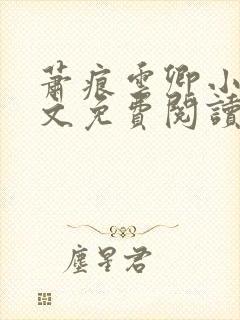 蕭痕雲卿小
文免費閱讀
塵星君